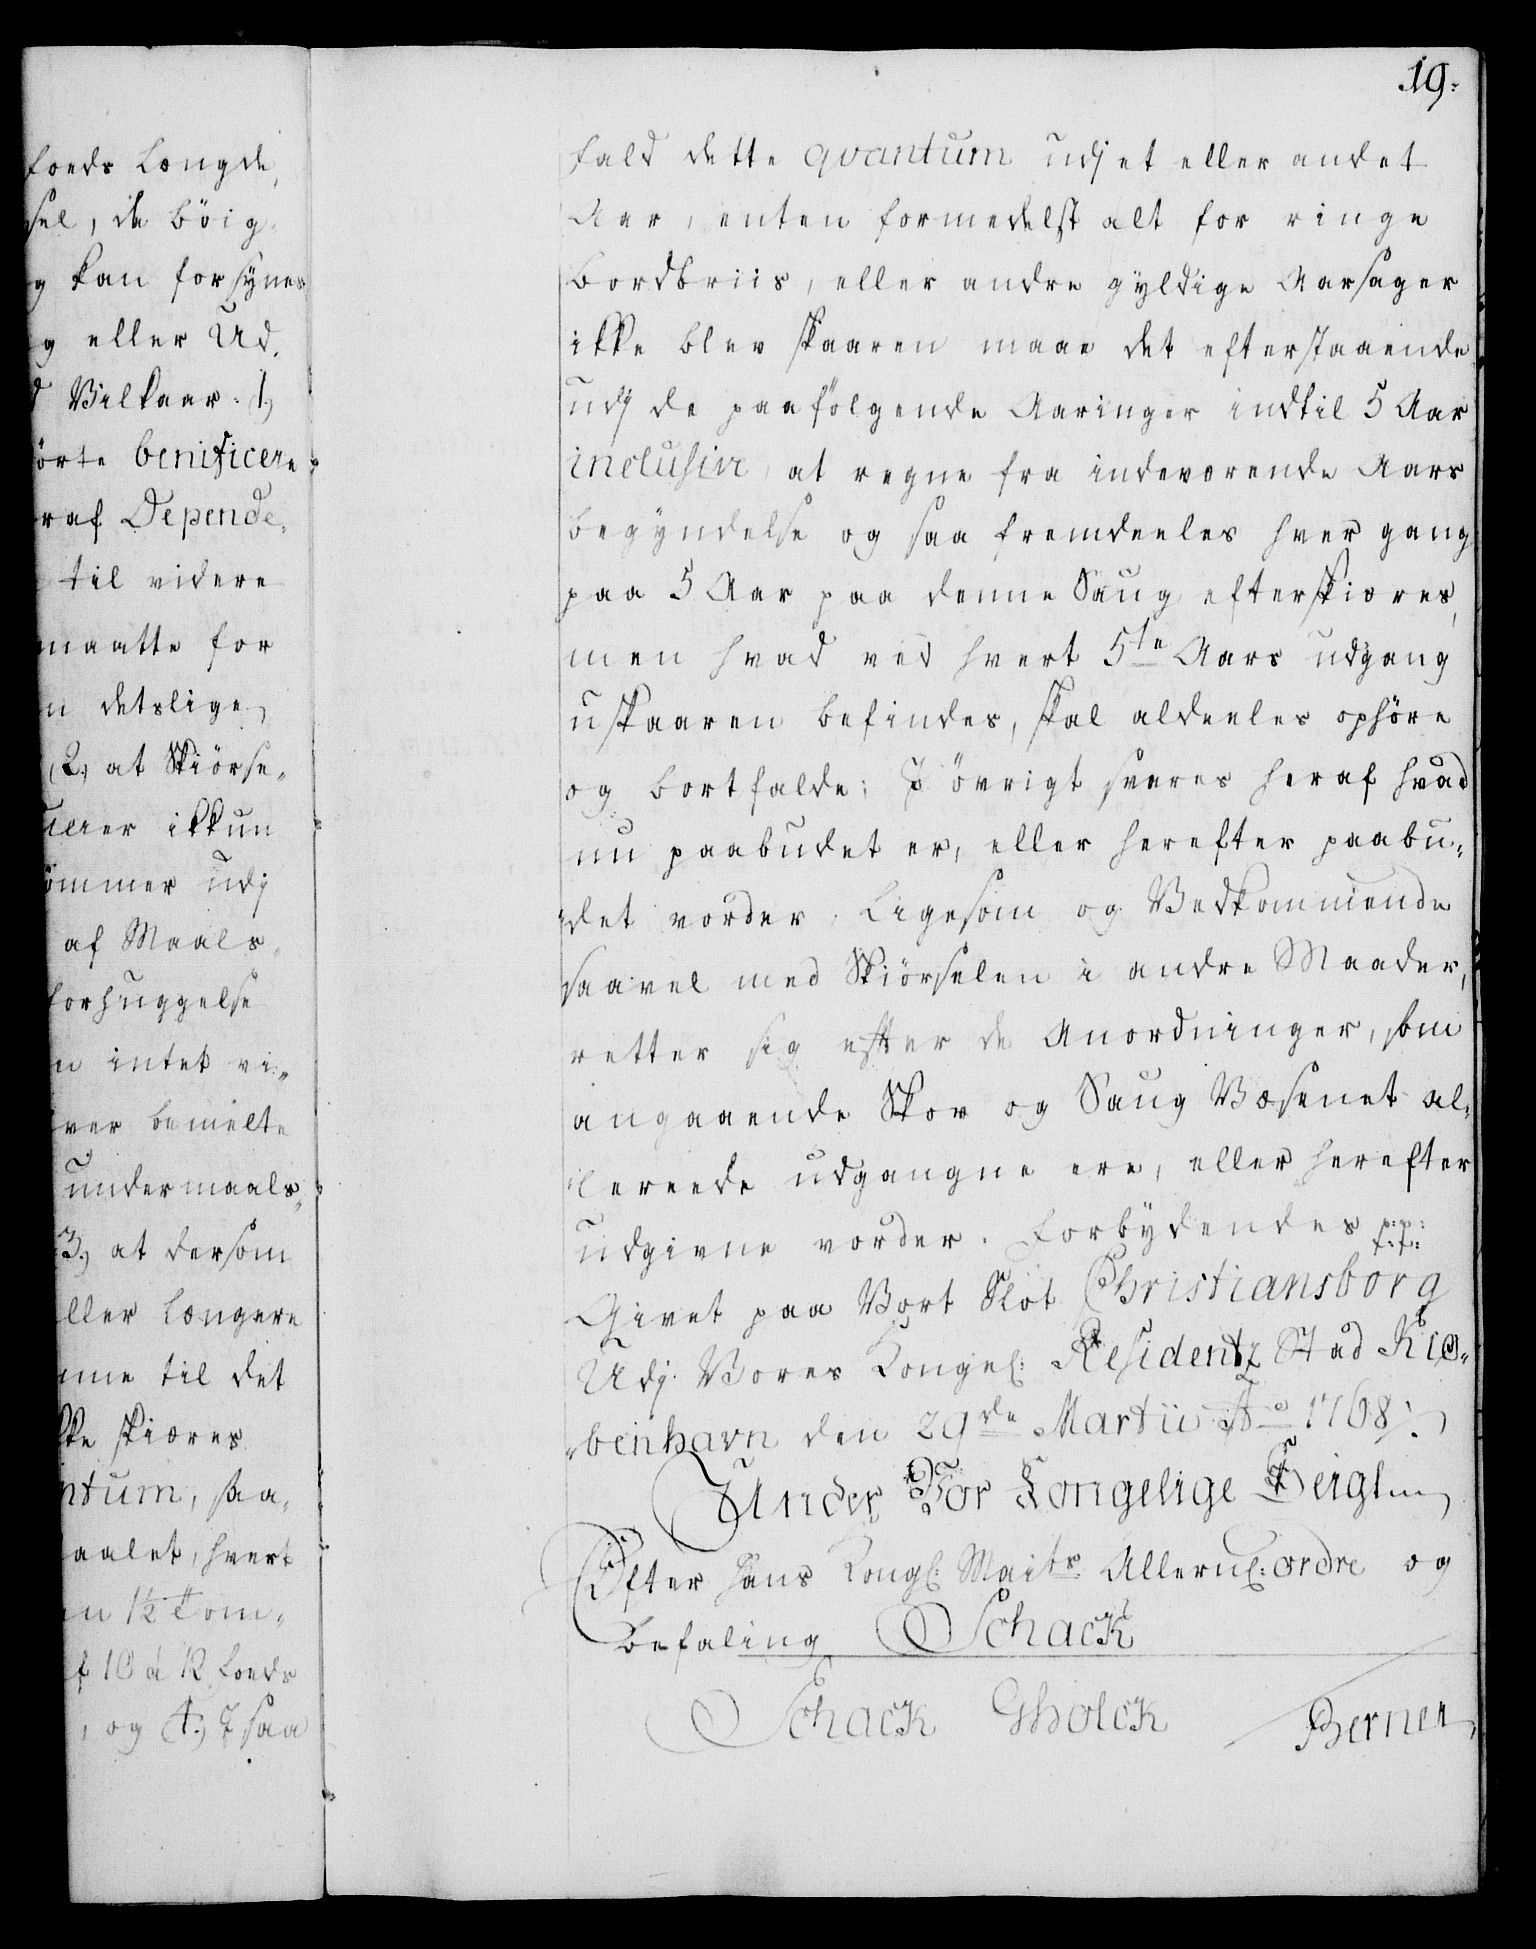 19.
foeds Længde,
sel, de böig,
g kan forsynes
g eller Ud,
d Vilkaar. 1.)
örte benificere
raf Depende,
til videre
maatte for
n detslige,
(2.) at Skiörse„
uerer ikkun
ömmer udj
af Maals„
forhuggelse
n intet vi„
ver bemelte
undermaals„
3.) at dersom
ller Længere
nne til det
kke skiæres
ntum, saa„
aalet, hvert
n 1½ Tom„
f 10 á 12 foeds
, og 4.) I saa
fald dette qvantum udj et eller andet
Aar, enten formedelst alt for ringe
Bordbriis, eller andre gyldige Aarsager
ikke blev skaaren maae det efterstaaende
udj de paafölgende Aaringer indtil 5 Aar
inclusive, at regne fra indeværende Aars
begyndelse og saa fremdeeles hver gang
paa 5 Aar paa denne Saug efterskiæres,
men hvad ved hvert 5te Aars udgang
uskaaren befindes, skal aldeeles ophöre
og bortfalde; I övrigt svares heraf hvad
nu paabudet er, eller herefter paabu„
„det vorder, Ligesom og Vedkommende
saavel med Skiörselen i andre Maader,
retter sig efter de Anordninger, som
angaaende Skov og Saug Væsenet al„
„lereede udgangne ere, eller herefter
udgivne vorder. Forbydendes p:p:
f:f:
Givet paa Vort Slot Christiansborg
Udj Vores Kongel: Residentz Stad Kiö„
„benhavn den 29de Martii Ao 1768/:
Under Vor Kongelige Zeigl
Efter Hans Kongl: Maits Allernl: ordre og
befaling Schack
Schack GHolck Berner